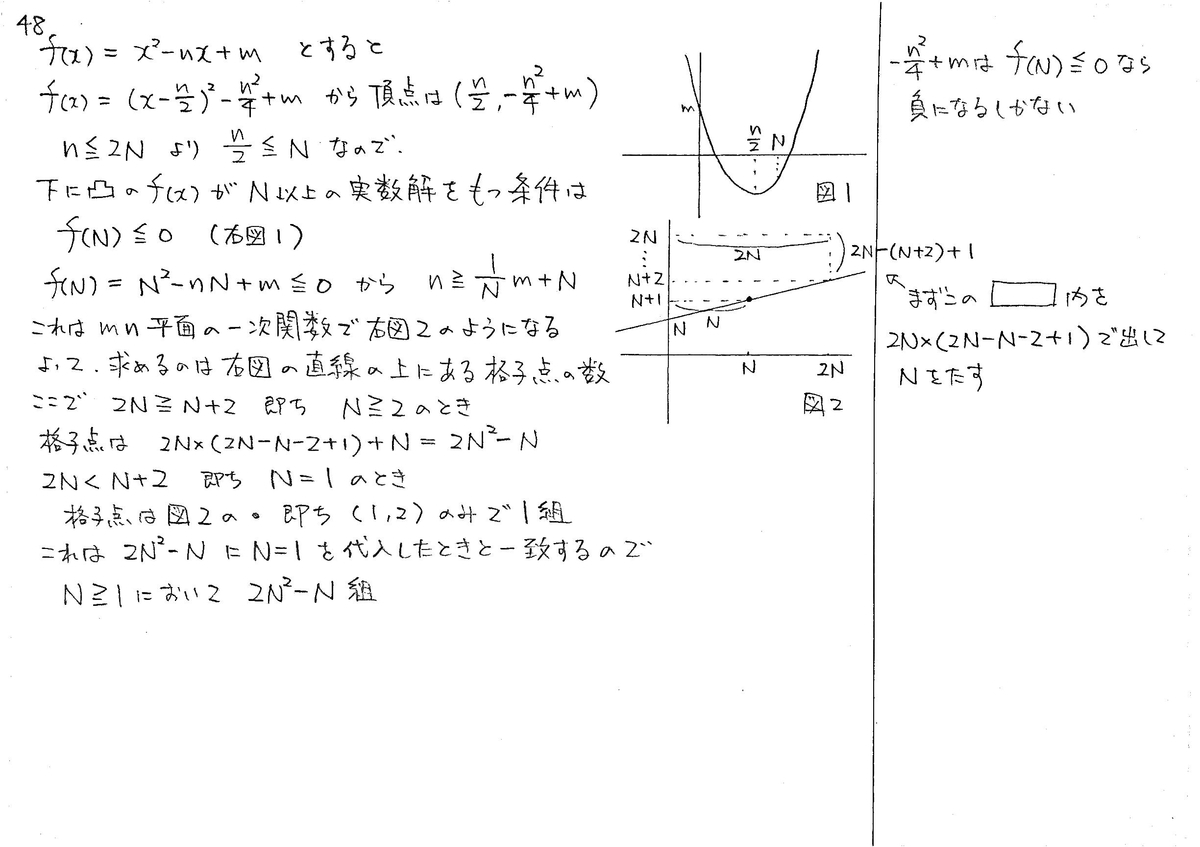 48
f(x) = x²-nx+m とすると
f(x) = (x-n/2)²-n²/4+m から 頂点は (n/2, -n²/4+m)
n≦2N より n/2≦N なので、
下に凸の f(x) が N以上の実数解をもつ条件は
f(N)≦0 (右図1)
f(N) = N²-nN+m≦0 から n≧1/N m+N
これは mn 平面の一次関数で右図2のようになる
よって、求めるのは右図の直線の上にある格子点の数
ここで 2N≧N+2 即ち N≧2のとき
格子点は 2N×(2N-N-2+1)+N = 2N²-N
2N<N+2 即ち N=1のとき
格子点は図2の・即ち (1,2) のみで1組
これは 2N²-N に N=1 を代入したときと一致するので
N≧1において 2N²-N 組
m
n/2 N
図1
2N
⋮
N+2
N+1
N
2N
N
2N-(N+2)+1
N
2N
図2
-n²/4+mは f(N)≦0なら
負になるしかない
まずこの 内を
2N×(2N-N-2+1)で出して
Nをたす